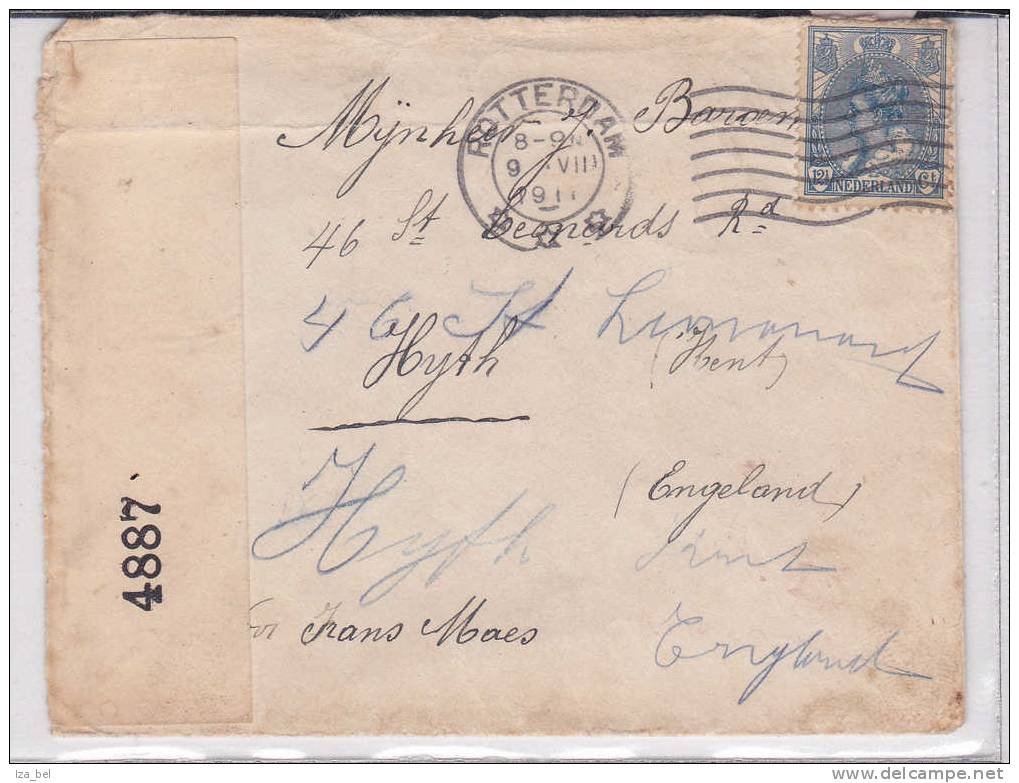 Mijnheer J. Baron
ROTTERDAM
8-9N
9 VIII
191
12½ NEDERLAND Ct
46 St Leonards Rd
46 St Leonard
Hyth (Kent)
(Engeland)
Hyth Kent
4887
for Frans Maes
England
lza_bel
http://www.delcampe.net